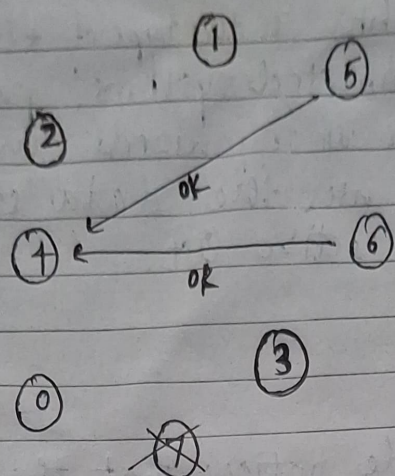 1
5
2
OK
4
6
OK
3
0
7